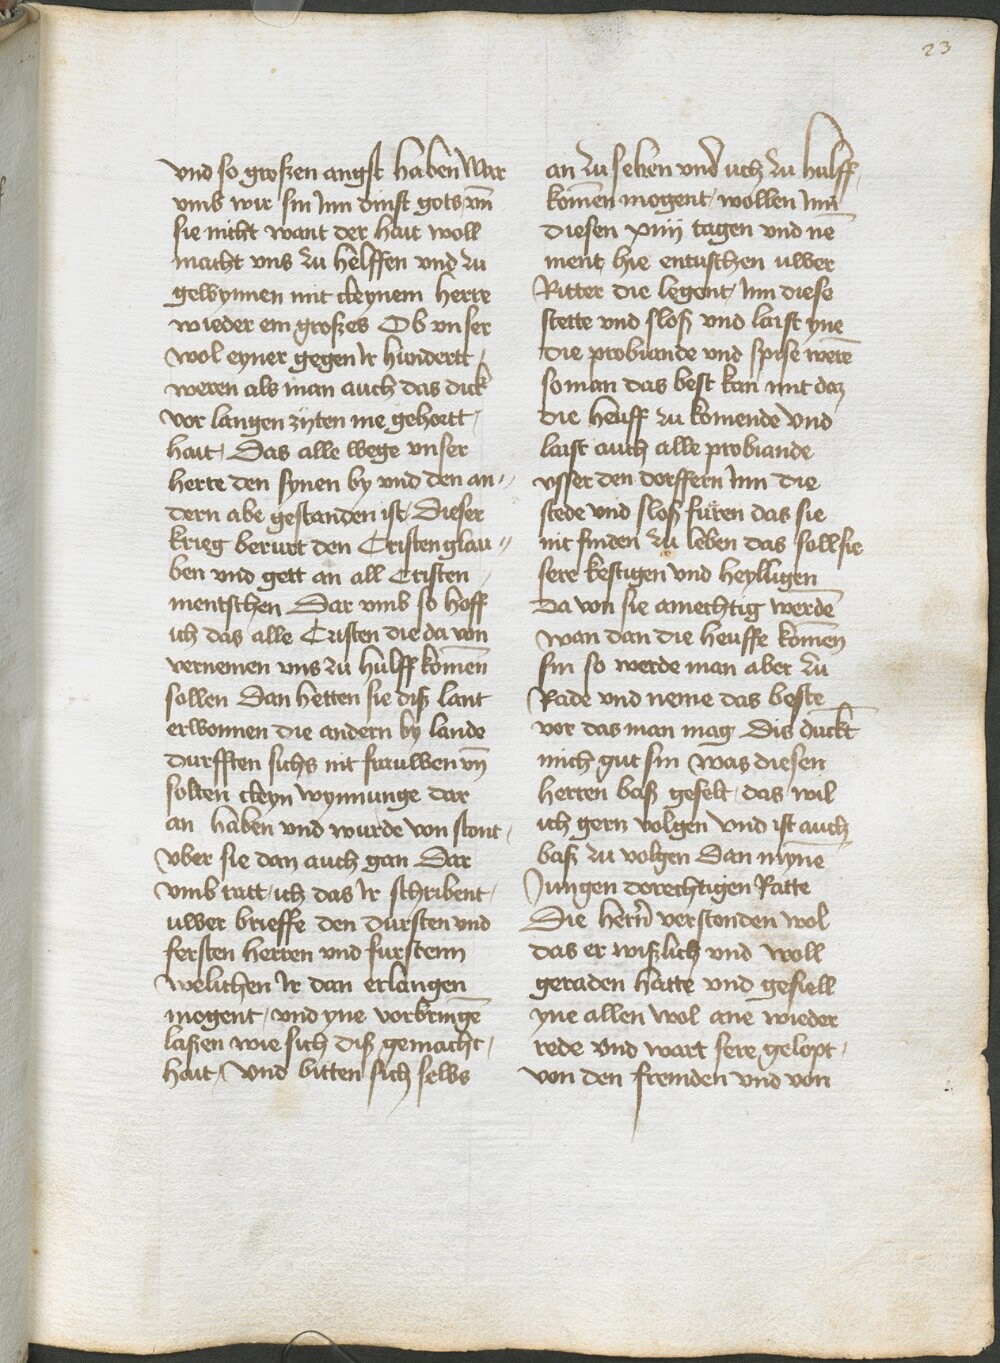 23
vnd so großen angst haben War
vmb wir sin jnn dinst gots vn̄
sie nicht want der hait woll
macht vns zu helffen vnd zu
gewynnen mit cleynem herre
wieder ein großes Ob vnser
wol eyner gegen jr hundertt
weren als man auch das dick
vor langen zyten me gehortt
hait Das alle wege vnser
herre den synen by vnd den an„
dern abe gestanden ist Dieser
krieg berurt den Cristenglau„
ben vnd gett an all Cristen
mentschen Dar vmb so hoff
ich das alle Cristen die da von
vernemen vns zu hulff komēn
sollen Dan hetten sie diß lant
erwonnen die andern by lande
durfften sichs nit frauwen vn̄
solten cleyn wynnunge dar
an haben vnd wurde von stont
vber sie dan auch gan Dar
vmb ratt ich das jr schribent
uwer brieffe den dursten vnd
fersten herren vnd furstenn
welichen jr dan erlangen
mogent vnd yne vorbringē
laßen wie sich diß gemacht
hait Vnd bitten sich selbs
an zu sehen vnd uch zu hulff
komēn mogent wollen jnn
diesen xiiij tagen vnd ne
ment hie entuschen uwer
Ritter die legent jnn diese
stette vnd sloß vnd laist yne
die probiande vnd spise werē
so man das best kan mit daz
die heuff zu komende Vnd
laist auch alle probiande
vsser den dorffern jnn die
stede vnd sloß furen das sie
nit finden zu leben das soll sie
sere kestigen vnd heylligen
Da von sie amechtig werdē
wan dan die heuffe komēn
sin so werde man aber zu
Rade vnd neme das beste
vor das man mag Dis duckt
mich gut sin was diesen
herren baß gefelt das wil
ich gern volgen Vnd ist auch
baß zu volgen Dan mynē
Jungen dorechtigen Ratte
Die hern̄ verstonden wol
das er wißlich vnd woll
geraden hatte vnd gefiell
yne allen wol ane wieder
rede Vnd wart sere gelopt
von den fremden vnd von